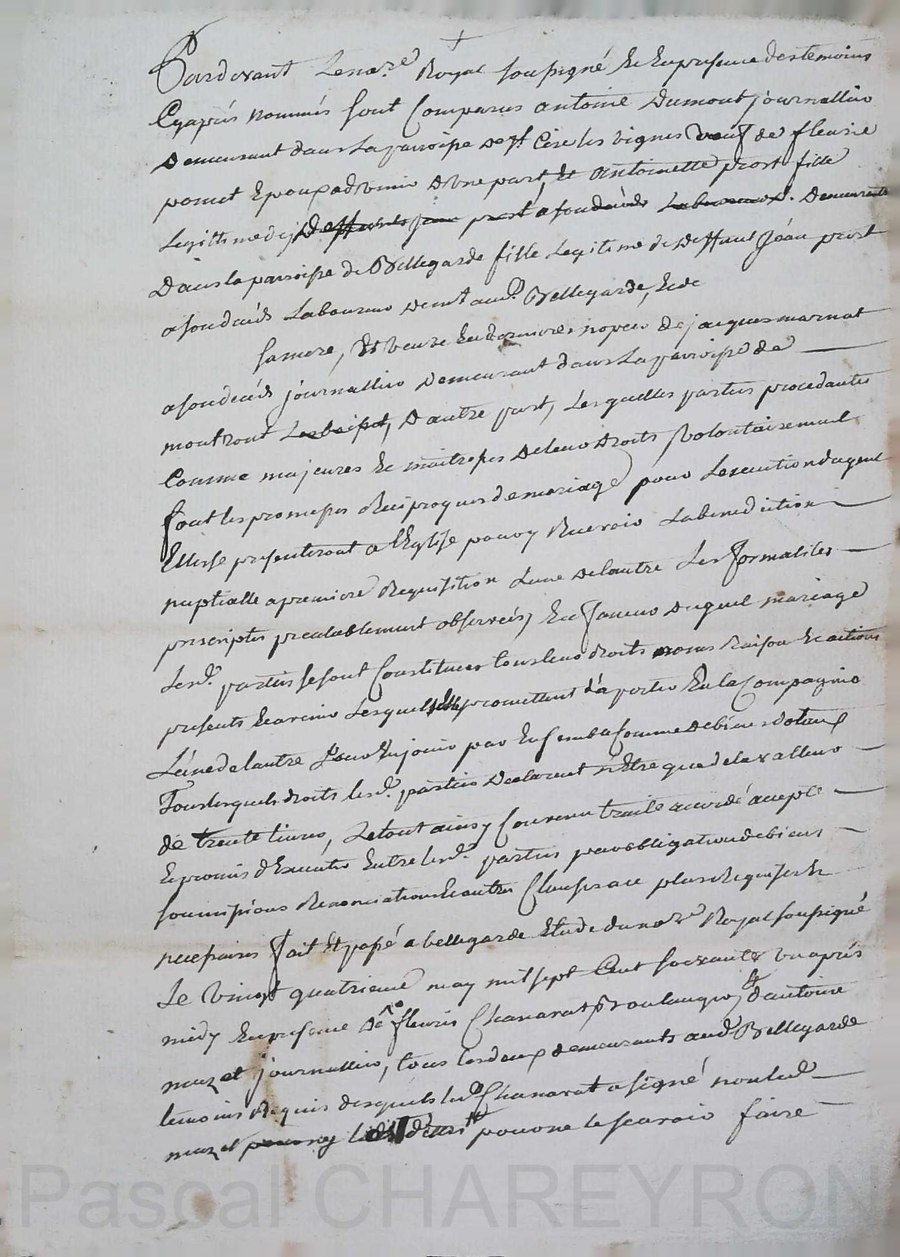 Pardevant Le no.re Royal soussigné Et En presence des temoins
Cyaprés nommés sont Comparus antoine Dumont journallier
Demeurant dans La parroisse de st Cire les vignes veuf de fleurie
poncet Epoux advenir d'une part, Et antoinette prost fille
Legithime de deffunts jean prost a son decéds Laboureur Demeurante
Dans la parroisse de Bellegarde fille Legitime de Deffunt Jéan prost
a son decéds Laboureur Demt aud. Bellegarde, Et de
sa mere, Et veuve En dernieres nopces de jacques marnat
a son decéds journallier Demeurant dans La parroisse de
montront d'autre part, Lesquelles parties procedantes
Comme majeures Et maitresses de leurs Droits volontairement
sont les promesses Reciproques de mariage pour L'execution duquel
Elles se presenteront a l'Eglise pour y Recevoir La benediction
nuptialle a premiere Requisition L'une de L'autre Les formalités
prescriptes prealablement observées, En faveur Duquel mariage
Lesd. parties se sont Constituées tous leurs droits noms Raisons Et actions
presents Et avenir Lesquels Elles promettent d'aporter En la Compagnie
L'une de L'autre Pour En jouir par Ensemble Comme de biens dotaux
Tous lesquels droits lesd. parties Declarent n'Etre que de la valleur
de trente livres, Le tout ainsy Convenu traité accordé accepté
Et promis d'Executer Entre lesd. parties par obligation de biens
soumissions Renonciations Et autres Clauses a ce plus Requises Et
necessaires fait Et passé a bellegarde Etude du no.re Royal soussigné
Le vingt quatrieme may mil sept Cent soixante un aprés
midy En presence de fleuris Chanarat Boulanger, Et d'antoine
mazet journallier, tous les deux demeurants aud. Bellegarde
temoins Requis desquels led. Chanarat a signé non led.
mazet pour ne le sçavoir faire
Pascal CHAREYRON